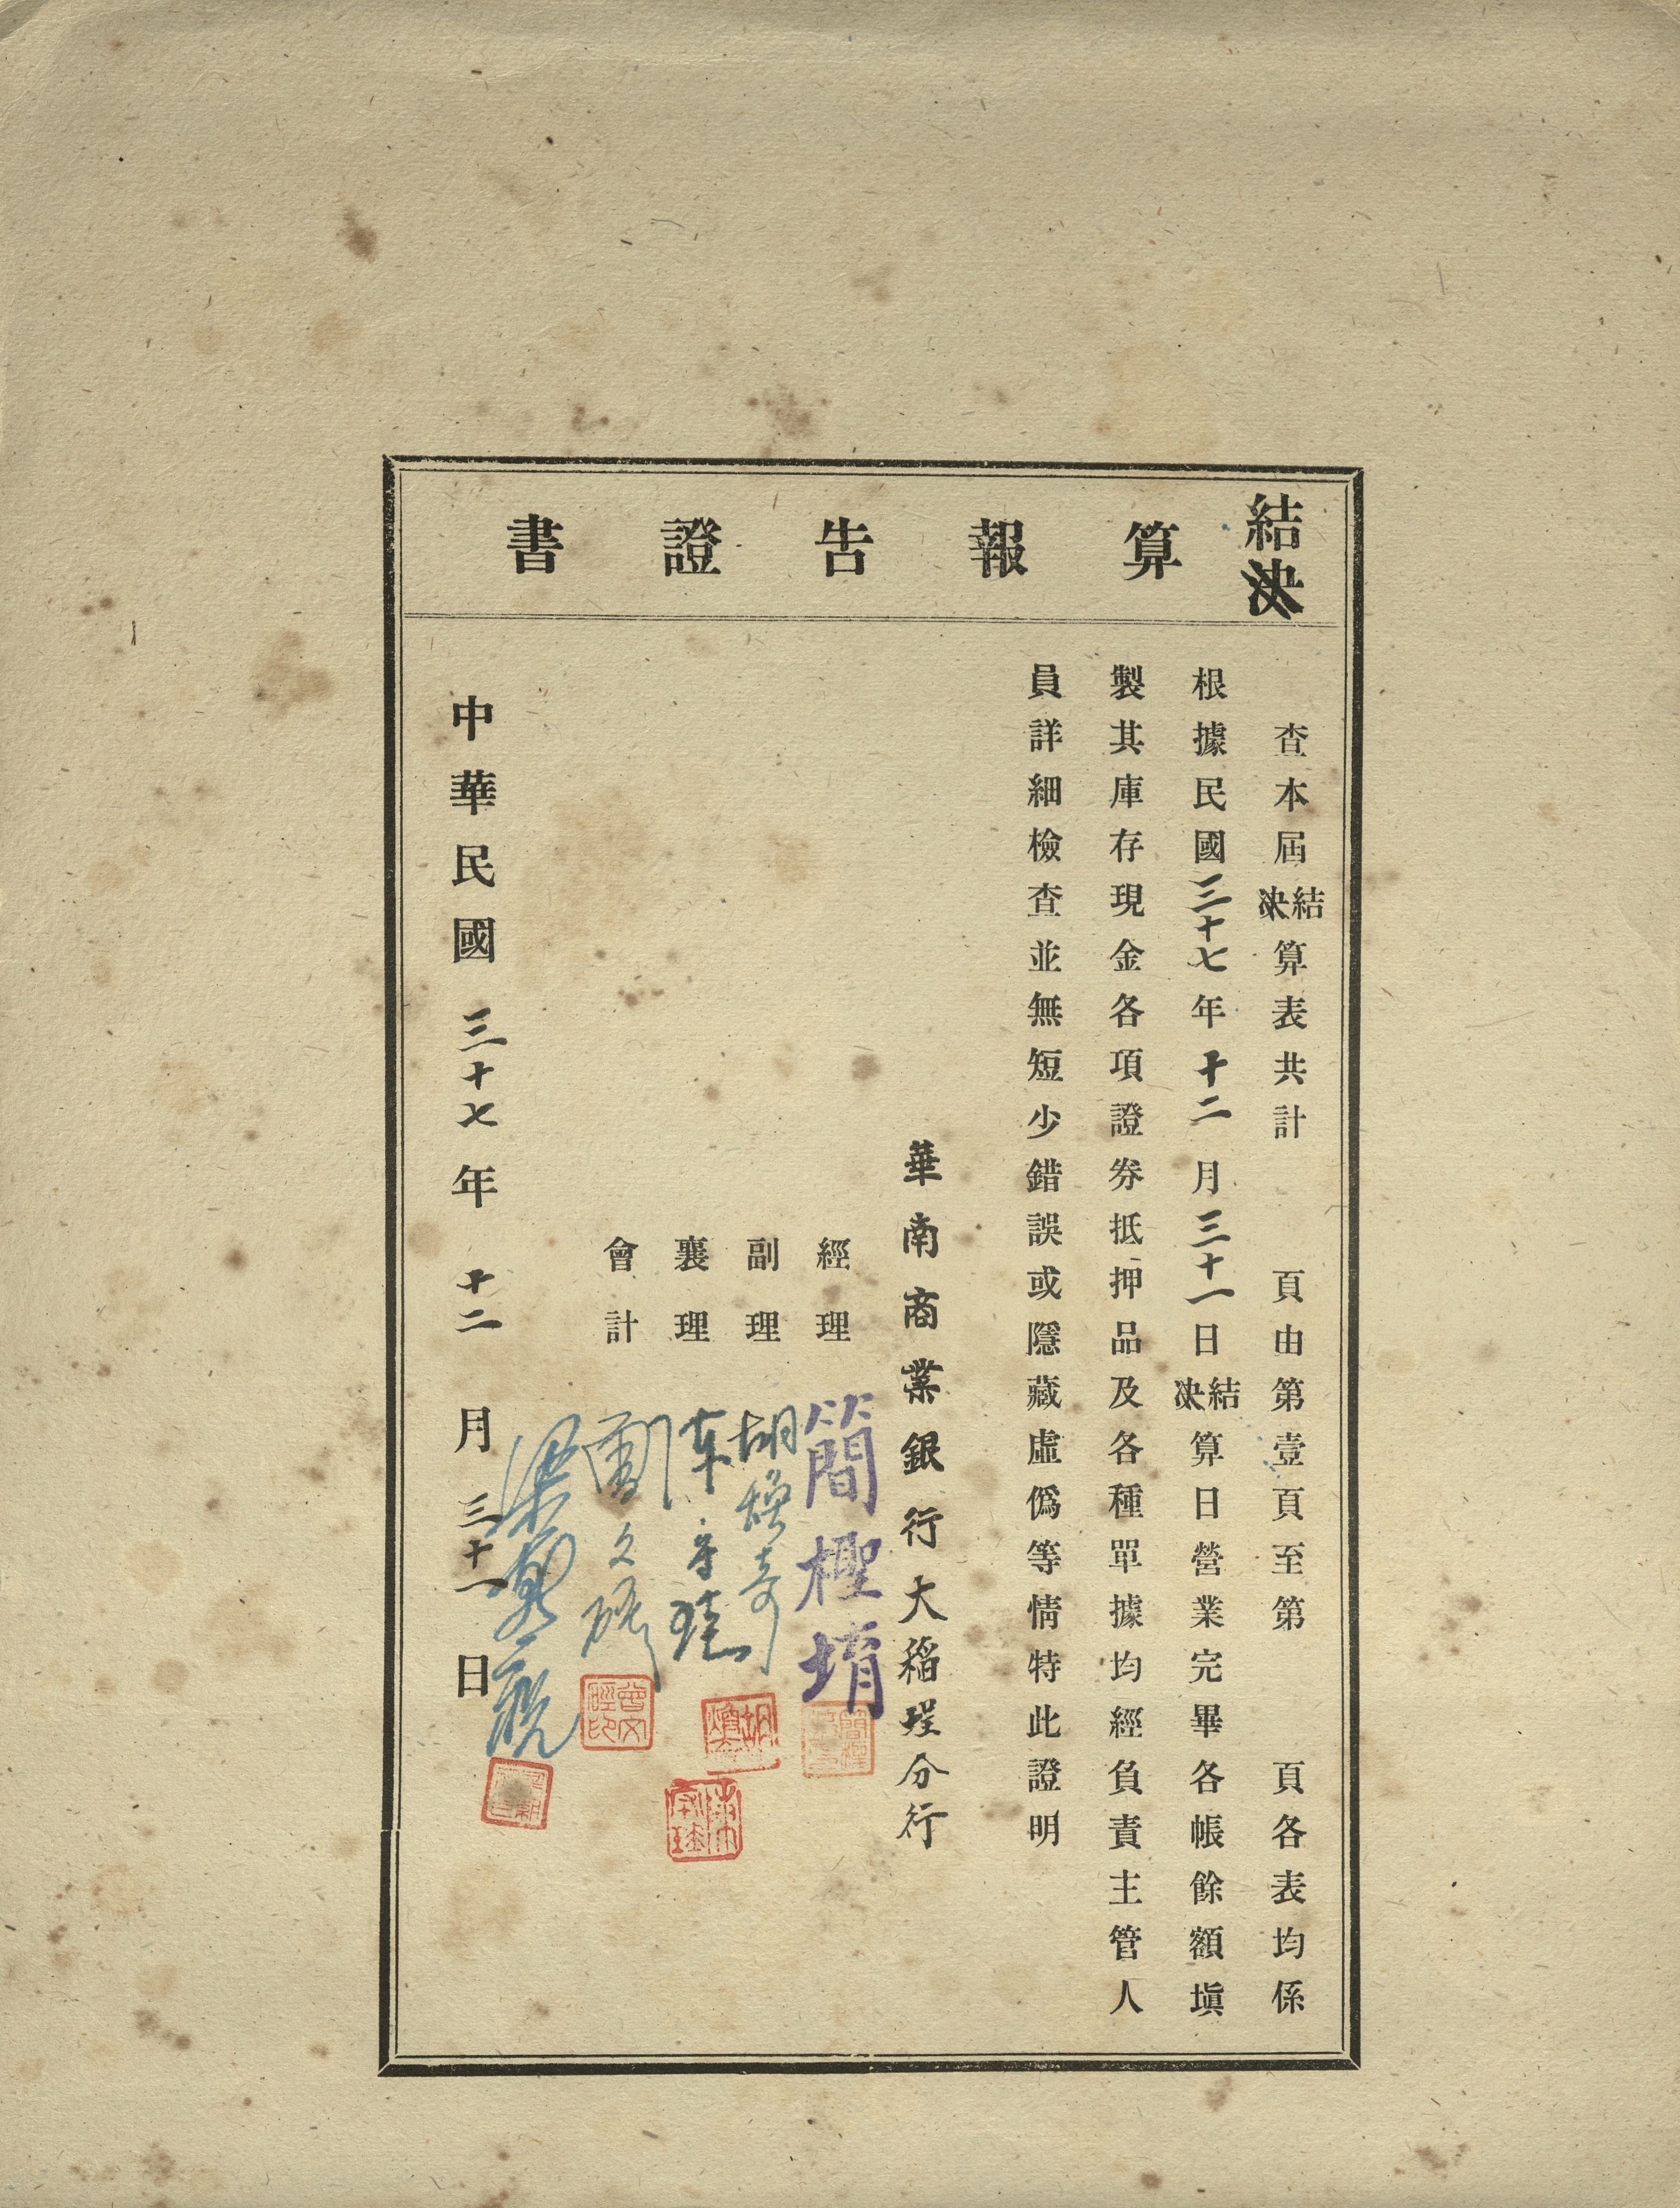 結決算報告證書
查本屆結決算表共計 頁由第壹頁至第 頁各表均係
根據民國三十七年十二月三十一日結決算日營業完畢各帳餘額塡
製其庫存現金各項證券抵押品及各種單據均經負責主管人
員詳細檢查並無短少錯誤或隱藏虛僞等情特此證明
華南商業銀行大稻埕分行
經理 簡檉堉
副理 胡煥奇
襄理
會計
中華民國三十七年十二月三十一日